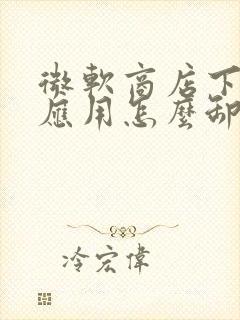 微軟商店下
應用怎麼卸
冷宏偉